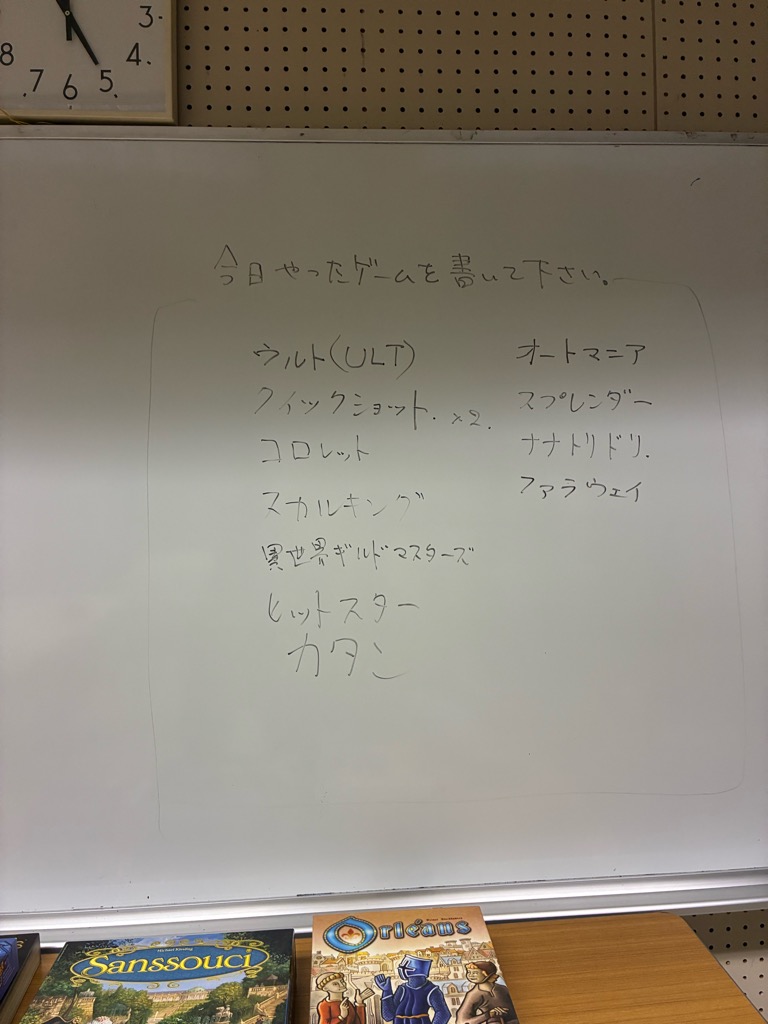 3
4
8
7
6
5
今日やったゲームを書いて下さい。
ウルト(ULT)
クイックショット. ×2.
コロレット
スカルキング
異世界ギルドマスターズ
ヒットスター
カタン
オートマニア
スプレンダー
ナナトリドリ.
ファラウェイ
Sanssouci
Orléans